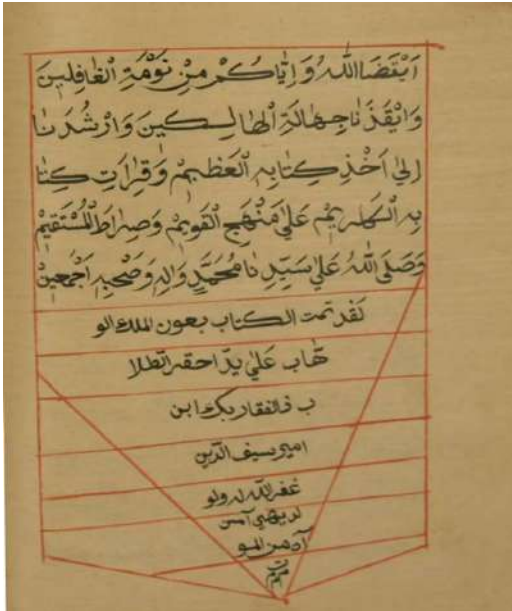 اَيْقَضَنَا اللّٰهُ وَاِيَّاكُمْ مِنْ نَوْمَةِ الْغَافِلِينَ
وَانْقَذَنَا جِهَالَةِ الْهَالِكِينَ وَارْشُدَنَا
اِلىٰ اَخْذِ كِتَابِهِ الْعَظِيمِ وَقِرَاتِ كِتَا
بِهِ الْكَرِيمِ عَلىٰ مَنْهَجِ الْقَوِيمِ وَصِرَاطِ الْمُسْتَقِيمِ
وَصَلَّى اللّٰهُ عَلىٰ سَيِّدِنَا مُحَمَّدٍ وَاٰلِهِ وَصَحْبِهِ اَجْمَعِينَ
لقد تمت الكتاب بعون الملك الو
هاب عَلىٰ يد احقر الطلا
ب ذالفقار بك ابن
امير سيف الدين
غفر الله له ولو
لديهي آمين